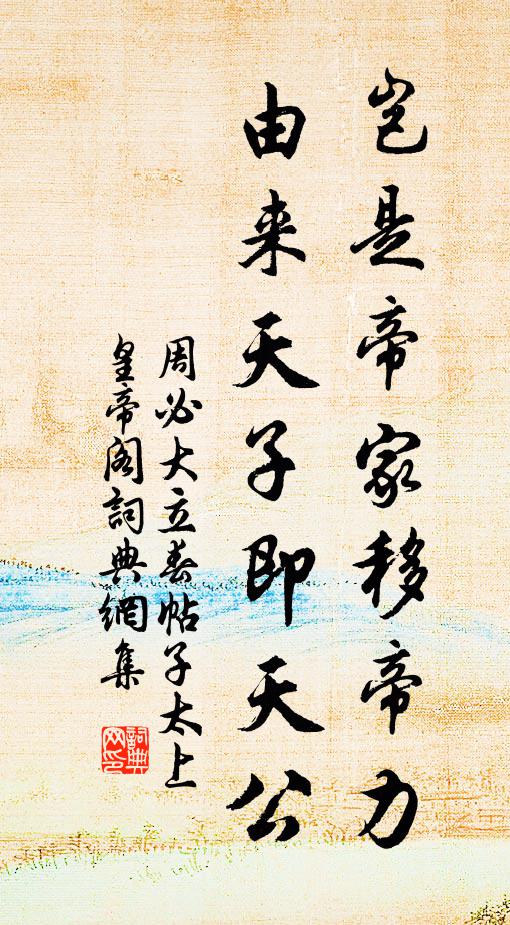 岂是帝家移帝力
由来天子即天公
周必大立春帖子太上
皇帝阁詞典網集
詞典
网印